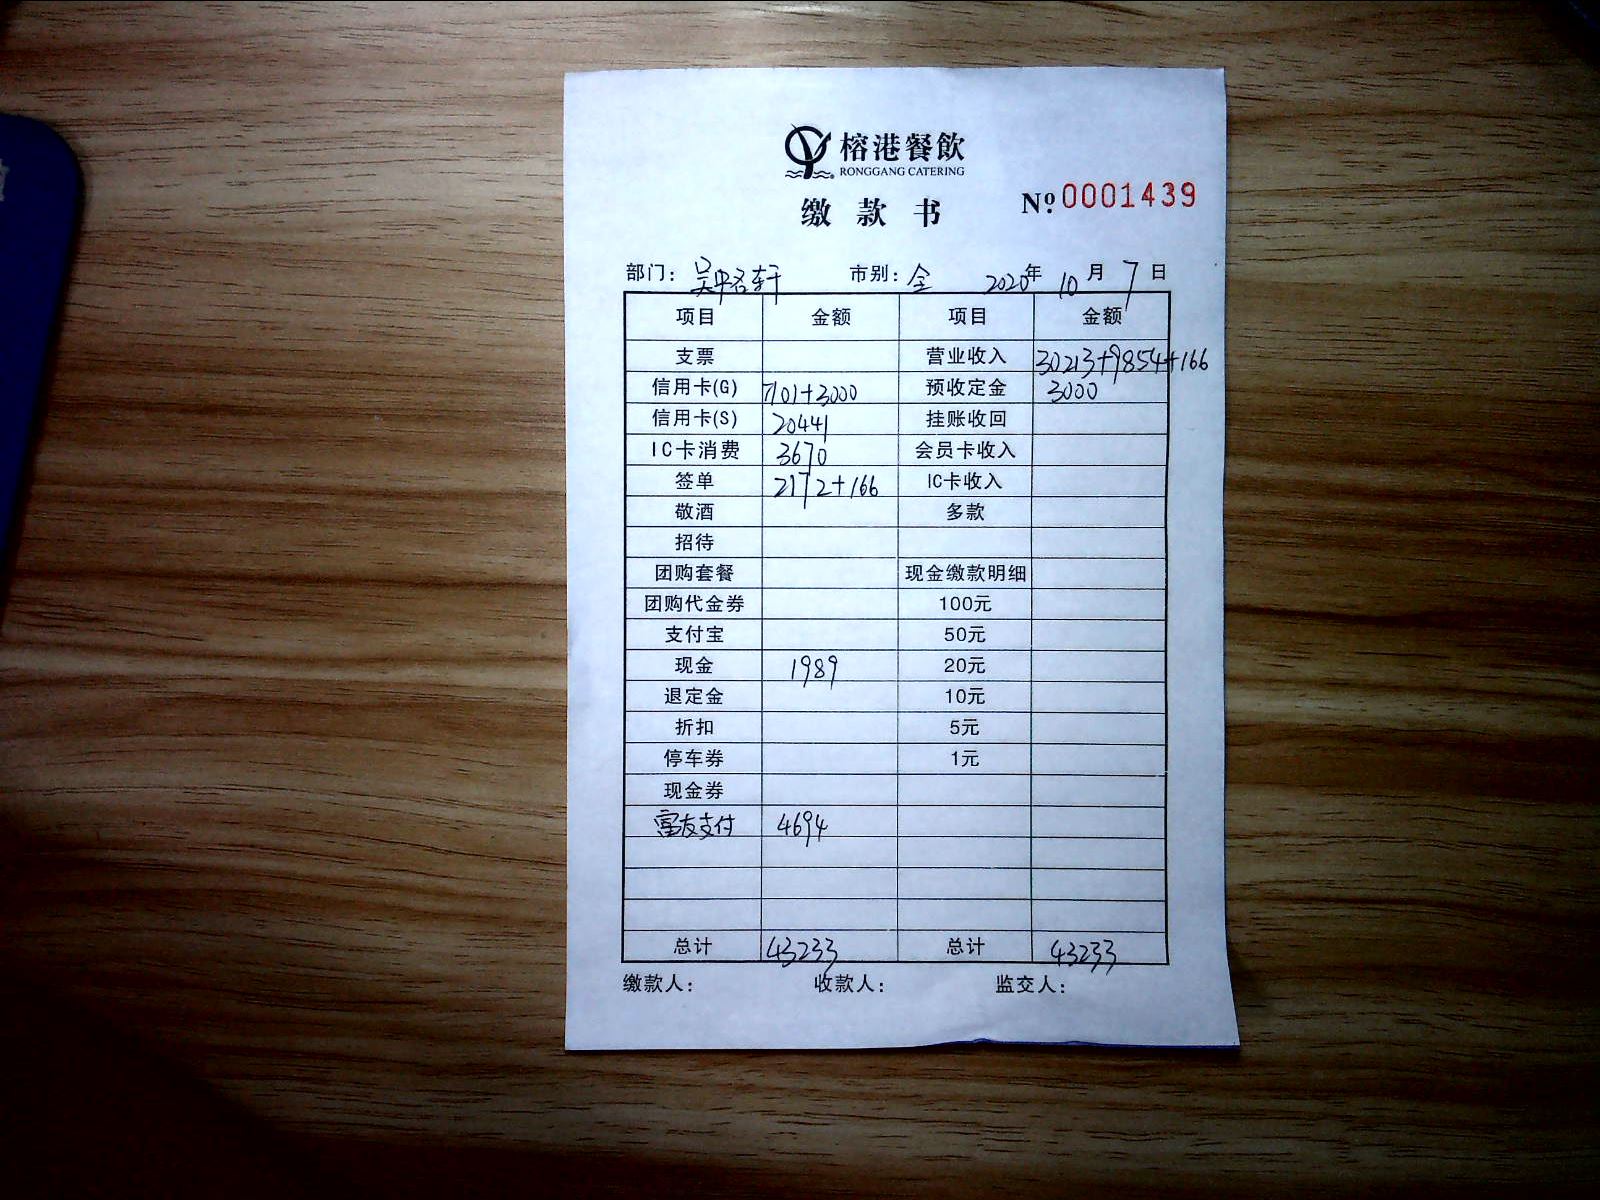 榕港餐飲
RONGGANG CATERING
缴款书
Nº.0001439
部门：吴中名轩 市别：全 2020年10月7日
项目 金额 项目 金额
支票 营业收入 30213+9854+166
信用卡(G) 7101+3000 预收定金 3000
信用卡(S) 20441 挂账收回
IC卡消费 3670 会员卡收入
签单 2172+166 IC卡收入
敬酒 多款
招待
团购套餐 现金缴款明细
团购代金券 100元
支付宝 50元
现金 1989 20元
退定金 10元
折扣 5元
停车券 1元
现金券
富友支付 4694
总计 43233 总计 43233
缴款人： 收款人： 监交人：